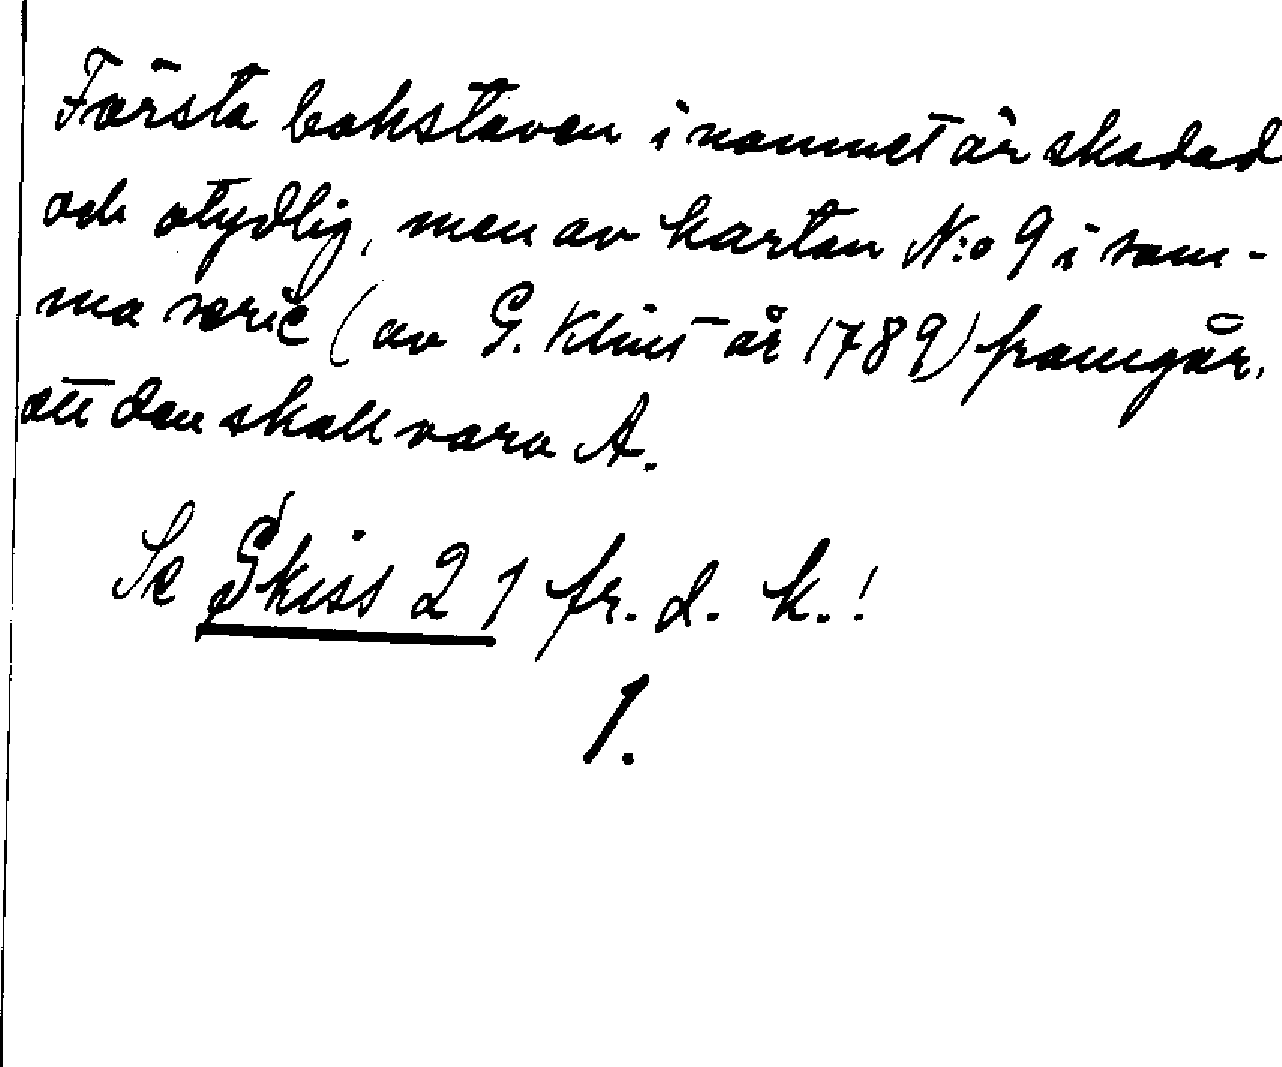 Första bokstaven i namnet är skadad
och otydlig, men av kartan N:o 9 i sam-
ma serie (av G. Klint år 1789) framgår,
att den skall vara A.
Se Skiss 21 fr. d. k.!
1.